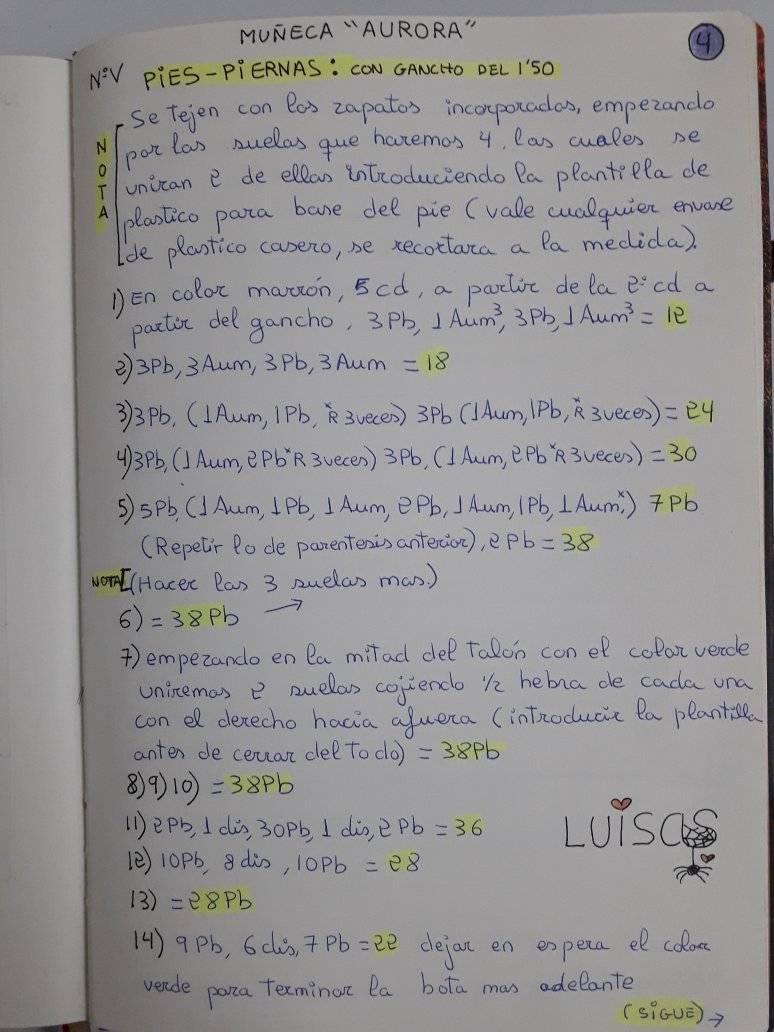 MUÑECA "AURORA"
4
NºV PiES-PiERNAS: CON GANCHO DEL 1'50
NOTA
Se Tejen con los zapatos incorporados, empezando
por las suelas que haremos 4, las cuales se
uniran 2 de ellas introduciendo la plantilla de
plastico para base del pie (vale cualquier envase
de plastico casero, se recortara a la medida).
1) En color marrón, 5cd, a partir de la 2ª cd a
partir del gancho, 3Pb, 1Aum³, 3Pb, 1Aum³ = 12
2) 3Pb, 3Aum, 3Pb, 3Aum = 18
3) 3Pb, (1Aum, 1Pb, *R 3veces) 3Pb (1Aum, 1Pb, *R 3veces) = 24
4) 3Pb, (1Aum, 2Pb*R 3veces) 3Pb, (1Aum, 2Pb*R 3veces) = 30
5) 5Pb, (1Aum, 1Pb, 1Aum, 2Pb, 1Aum, 1Pb, 1Aum,*) 7Pb
(Repetir lo de parentesis anterior), 2Pb = 38
NOTA [(Hacer las 3 suelas mas.)
6) = 38Pb →
7) empezando en la mitad del Talón con el color verde
uniremos 2 suelas cojiendo 1/2 hebra de cada una
con el derecho hacia afuera (introducir la plantilla
antes de cerrar del todo) = 38Pb
8) 9) 10) = 38Pb
11) 2Pb, 1 dis, 30Pb, 1 dis, 2Pb = 36
12) 10Pb, 8 dis, 10Pb = 28
LUiSAS
13) = 28Pb
14) 9Pb, 6 dis, 7Pb = 22 dejar en espera el color
verde para terminar la bota mas adelante
(SiGUE) →